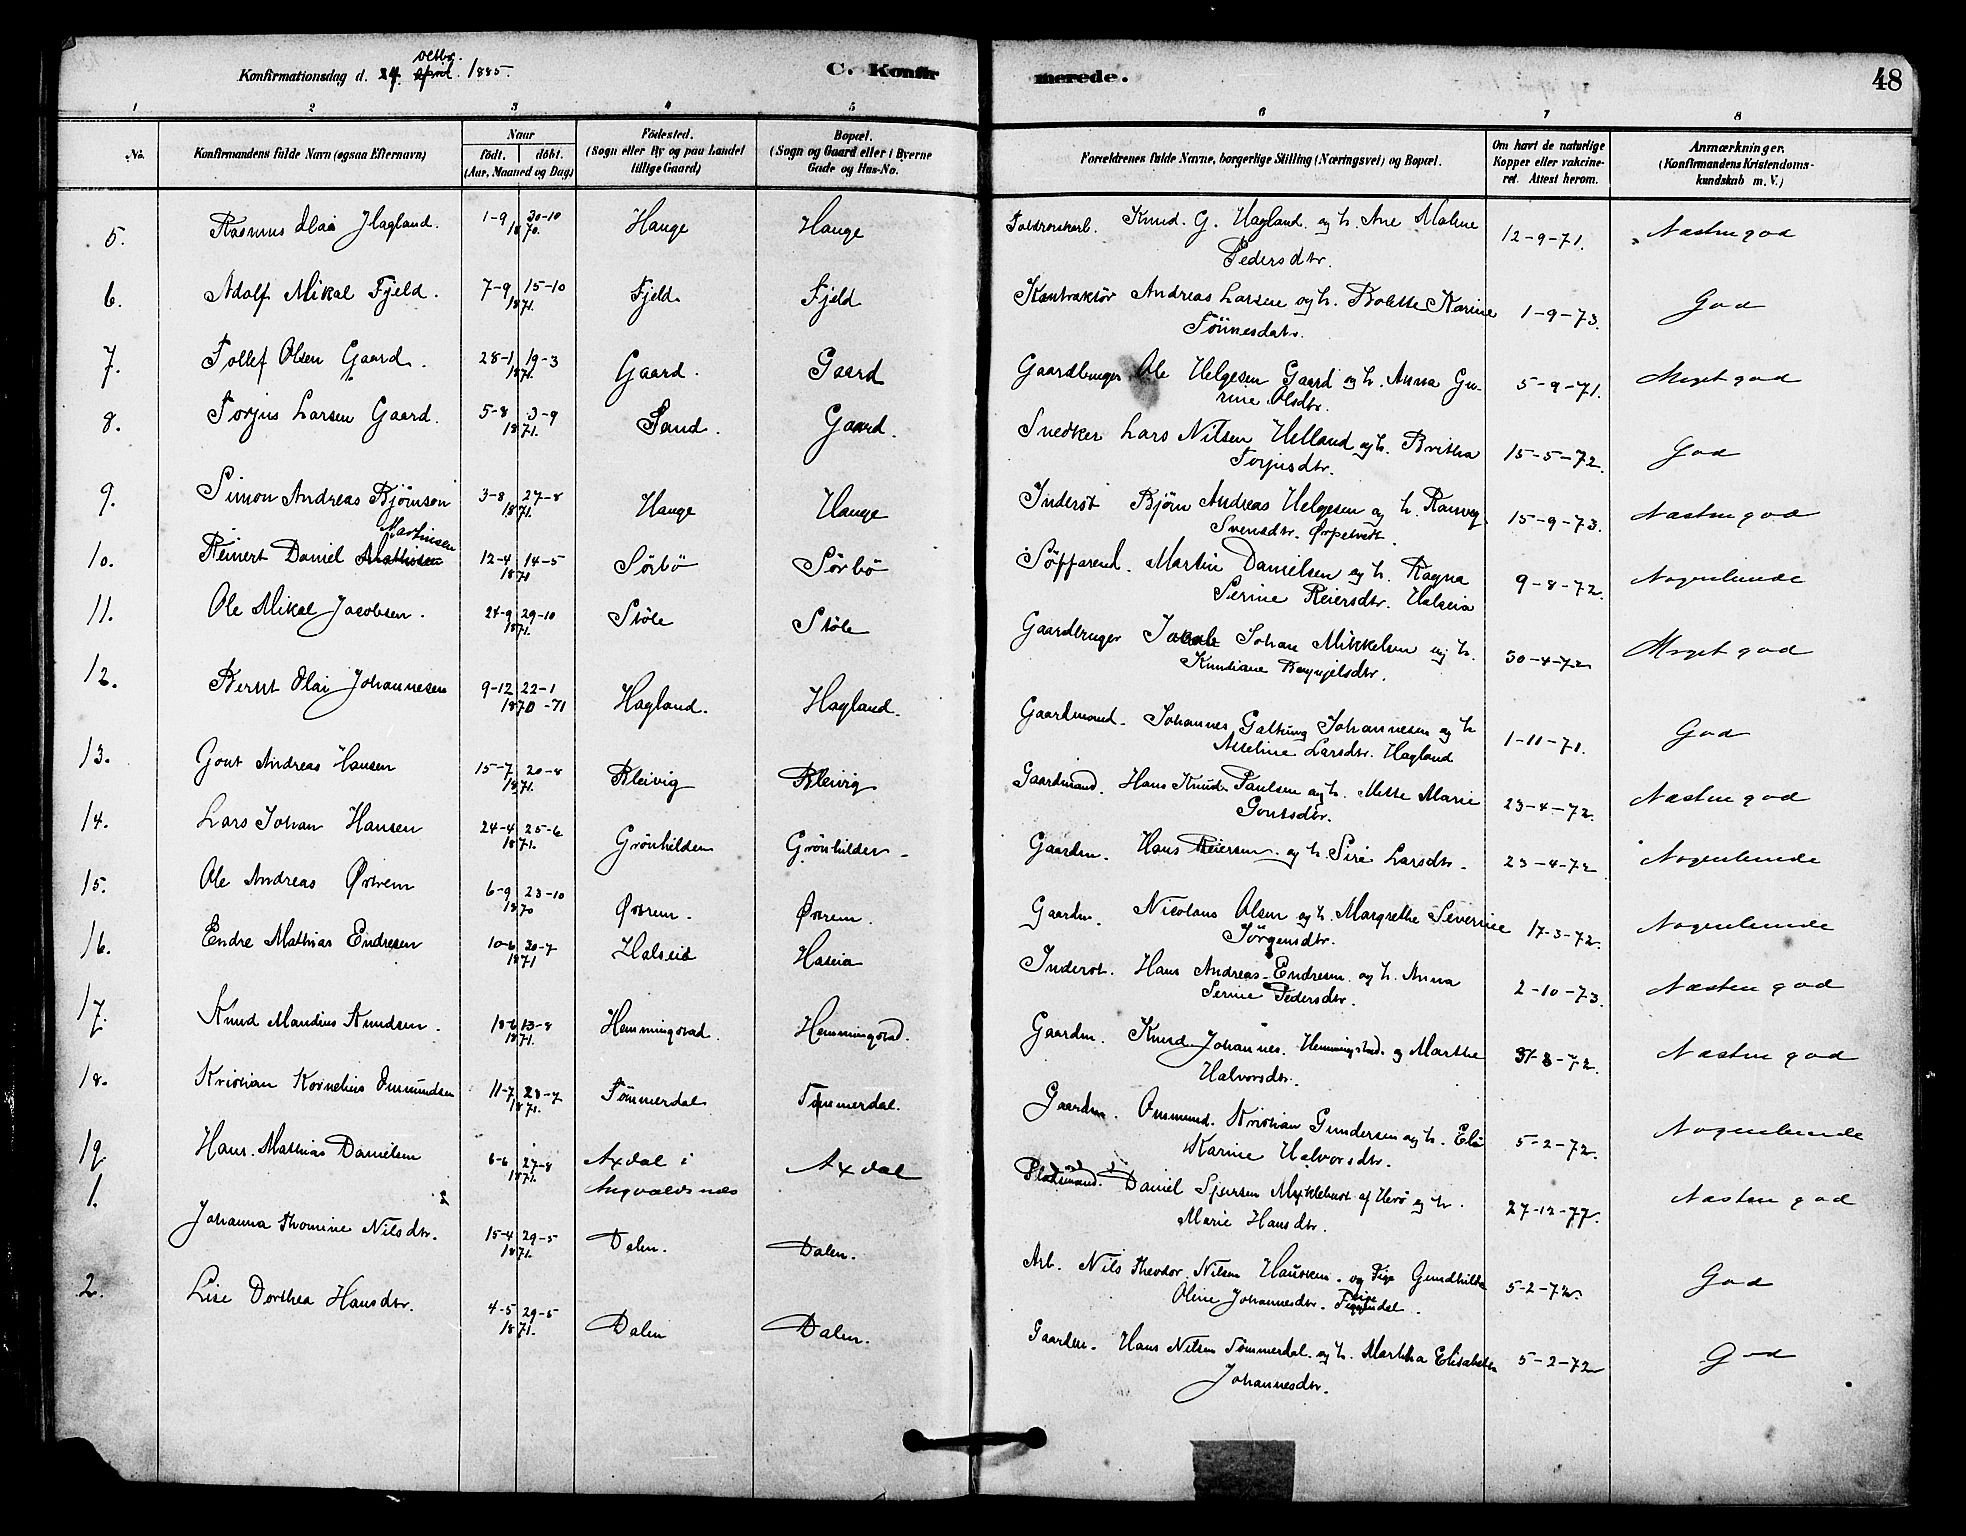 Konfirmationsdag d. 24. octbr. april 1885.
C. Konfirmerede.
48
1 2 3 4 5 6 7 8
No. Konfirmandens fulde Navn (ogsaa Efternavn) Naar födt. döbt. (Aar, Maaned og Dag) Födested. (Sogn eller By og paa Landet tillige Gaard) Bopæl. (Sogn og Gaard eller i Byerne Gade og Hus-No. Forældrenes fulde Navne, borgerlige Stilling (Næringsvei) og Bopæl. Om havt de naturlige Kopper eller vakcineret. Attest herom. Anmærkninger. (Konfirmandens Kristendomskundskab m. V.)
5. Rasmus Olai Hagland. 1-9 30-10 1870. Hauge Hauge Knud. G. Hagland. og h. Ane Malene 12-9-71. Næsten god
Pedersdtr.
6. Adolf Mikal Fjeld. 7-9 15-10 1871. Fjeld Fjeld Kontraktör Andreas Larsen og h. Bolette Karine 1-9-73. God
Tönnesdatr.
7. Tollef Olsen Gaard. 28-1 19-3 1871. Gaard. Gaard Gaardbruger Ole Helgesen Gaard og h. Anna Gu- 5-9-71. Meget god
rine Olsdtr.
8. Torjus Larsen Gaard. 5-8 3-9 1871. Sand. Gaard. Snedker Lars Nilsen Helland og h. Britha 15-5-72. God
Torjusdtr.
9. Simon Andreas Bjömsen 3-8 27-8 1871. Hauge Hauge Inderst Björn Andreas Helgesen og h. Ranveg 15-9-73. Næsten god
Svensdtr. Ørpetvedt.
10. Reinert Daniel Mathisen Martinsen 12-4 14-5 1871 Sörbö Sörbö Söfarend. Martin Danielsen og h. Ragna 9-8-72. Nogenlunde
Serine Reiersdtr. Halseia
11. Ole Mikal Jacobsen. 24-9 29-10 1871. Stöle Stöle Gaardbruger Jacob Johan Mikkelsen og h. 30-4-72 Meget god
12. Bernt Olai Johannesen 9-12 22-1 1870-71 Hagland. Hagland. Gaardmand. Johannes Galtung Johannesen og h 1-11-71. God
Asseline Larsdtr. Hagland
13. Gout Andreas Hansen 15-7 20-8 1871. Bleivig Bleivig Gaardmand. Hans Knud Paulsen og h. Mette Marie 23-4-72. Næsten god
Goutsdtr.
14. Lars Johan Hansen 24-4 25-6 1871. Grönhilder Grönhilder Gaardm. Hans Reiersen og h. Siri Larsdtr. 23-4-72 Nogenlunde
15. Ole Andreas Østrem 6-9 23-10 1870 Østrem. Østrem. Gaardm. Nicolaus Olsen og h. Margrethe Severine 17-3-72. Nogenlunde
Jörgensdtr.
16. Endre Mathias Endresen 10-6 30-7 1871 Halseid Haseia Inderst. Hans Andreas Endresen og h. Anna 2-10-73. Næsten god
Serine Pedersdtr.
17. Knud Mandius Knudsen. 18-6 13-8 1871. Hemmingstad. Hemmingstad. Gaardm. Knud Johannes. Hemmingstad. og Marthe 31-8-72. Næsten god
Halvorsdtr.
18. Kristian Kornelius Ommundsen 11-7 23-7 1871. Tömmerdal Tömmerdal. Gaardm. Ommund. Kristian Gundersen og h. Eli 5-2-72. Nogenlunde
Karine Halvorsdtr.
19. Hans. Mathias Danielsen 6-6 27-8 1871. Axdal i Augvaldsnæs Axdal Daniel Sjursen Myklebust af Herö og h. 27-12-77. Næsten god
Marie Hansdtr.
1. Johanna Thomine Nilsdtr. 15-4 29-5 1871. Dalen. Dalen. Arb. Nils Theodor Nilsen Hausken. og Pige Gundhilda 5-2-72. God
Oline Johannesdtr.
2. Lise Dorthea Hansdtr. 4-5 29-5 1871. Dalen Dalen. Gaardm. Hans Nilsen Tömmerdal. og h. Martha Elisabeth 5-2-72 God
Johannesdtr.